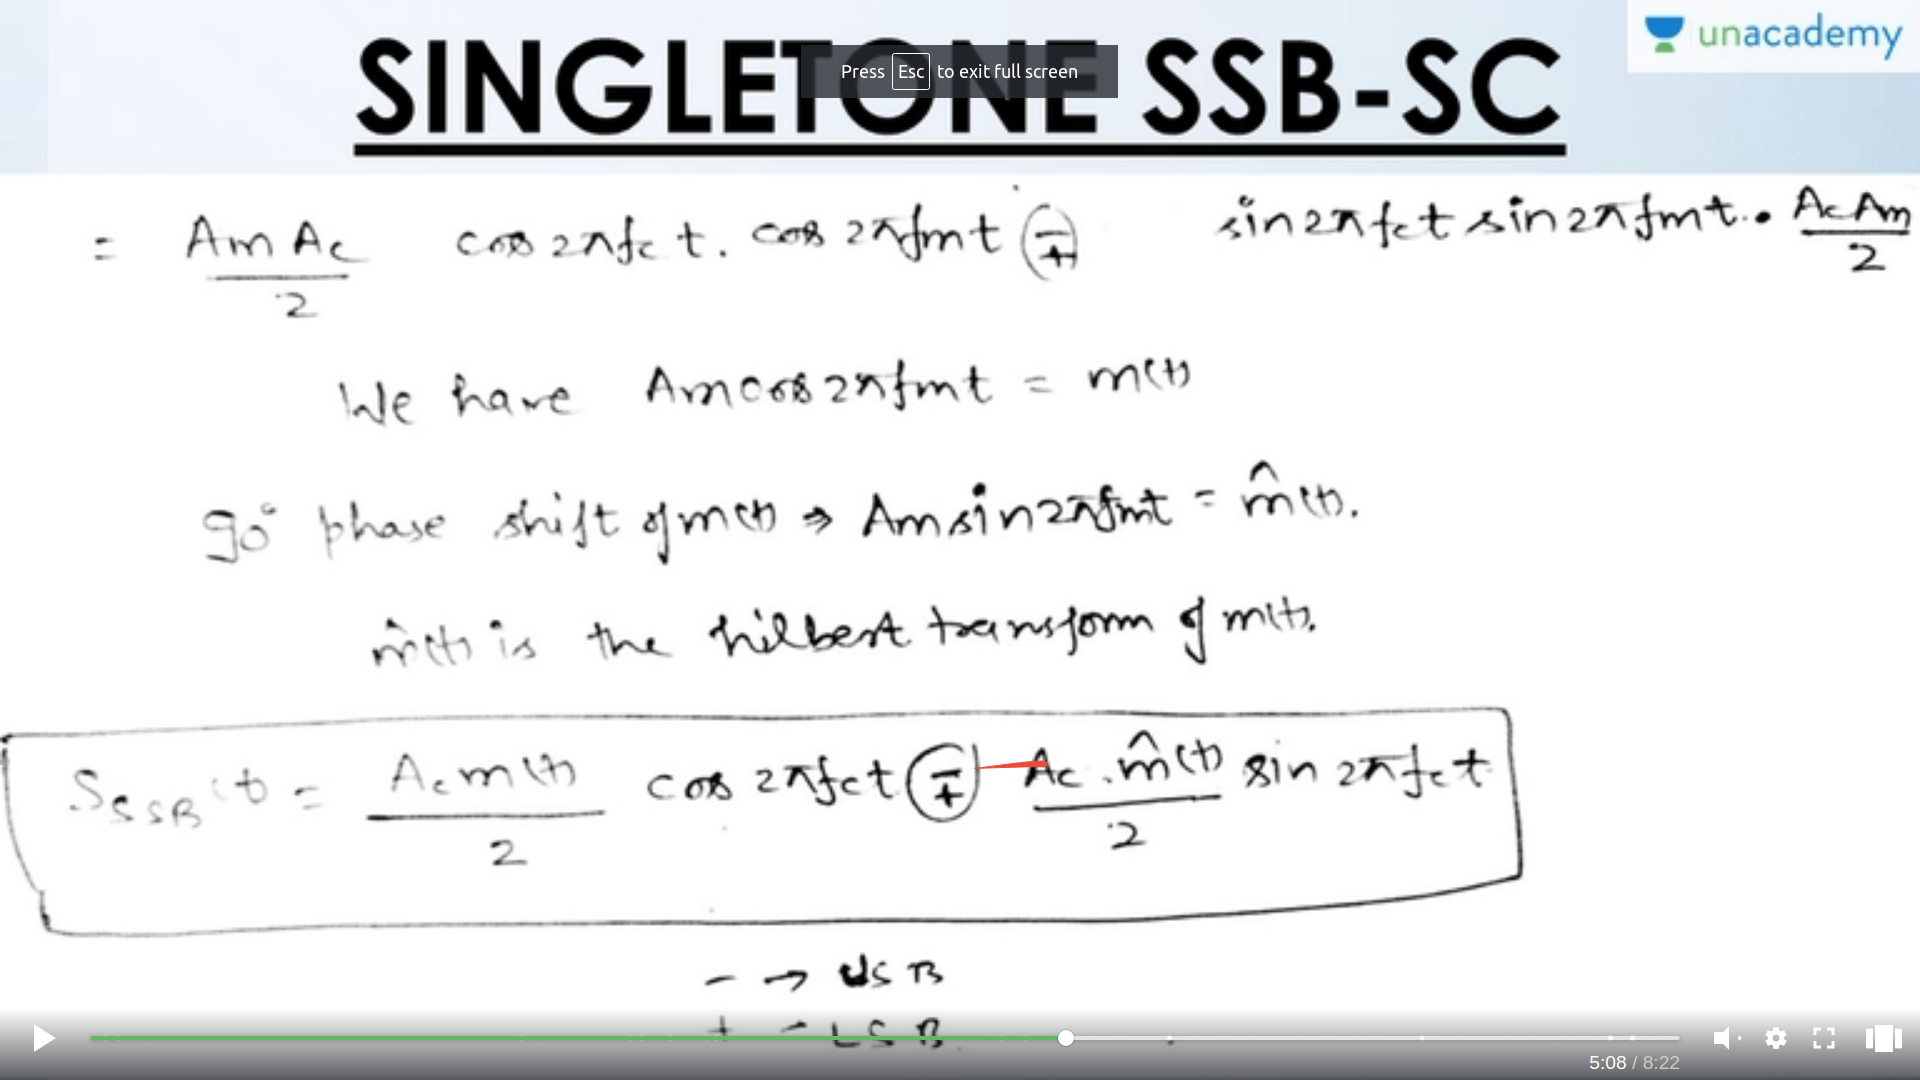 unacademy
SINGLETONE SSB-SC
Press Esc to exit full screen
= AmAc/2 cos2πfct.cos2πfmt ∓ sin2πfct sin2πfmt. AcAm/2
We have Amcos2πfmt = m(t)
90° phase shift of m(t) ⇒ Amsin2πfmt = m̂(t).
m̂(t) is the hilbert transform of m(t).
SSSB(t) = Acm(t)/2 cos2πfct ∓ Ac.m̂(t)/2 sin2πfct
- → USB
+ - LSB.
5:08 / 8:22